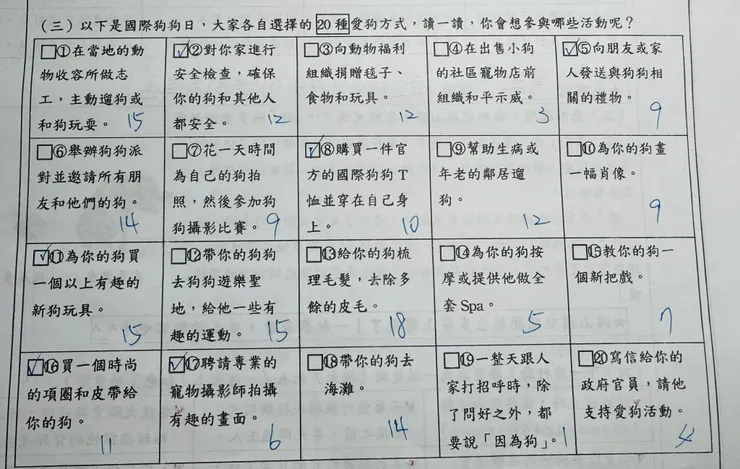 (三)以下是國際狗狗日，大家各自選擇的20種愛狗方式，讀一讀，你會想參與哪些活動呢？
□①在當地的動
物收容所做志
工，主動遛狗或
和狗玩耍。 15
☑②對你家進行
安全檢查，確保
你的狗和其他人
都安全。 12
□③向動物福利
組織捐贈毯子、
食物和玩具。
12
□④在出售小狗
的社區寵物店前
組織和平示威。
3
☑⑤向朋友或家
人發送與狗狗相
關的禮物。
9
□⑥舉辦狗狗派
對並邀請所有朋
友和他們的狗。
14
□⑦花一天時間
為自己的狗拍
照，然後參加狗
狗攝影比賽。 9
☑⑧購買一件官
方的國際狗狗T
恤並穿在自己身
上。 10
□⑨幫助生病或
年老的鄰居遛
狗。
12
□⑩為你的狗畫
一幅肖像。
9
☑⑪為你的狗買
一個以上有趣的
新狗玩具。
15
□⑫帶你的狗狗
去狗狗遊樂聖
地，給他一些有
趣的運動。 15
□⑬給你的狗梳
理毛髮，去除多
餘的皮毛。
18
□⑭為你的狗按
摩或提供他做全
套Spa。
5
□⑮教你的狗一
個新把戲。
7
☑⑯買一個時尚
的項圈和皮帶給
你的狗。
11
☑⑰聘請專業的
寵物攝影師拍攝
有趣的畫面。
6
□⑱帶你的狗去
海灘。
14
□⑲一整天跟人
家打招呼時，除
了問好之外，都
要說「因為狗」。 1
□⑳寫信給你的
政府官員，請他
支持愛狗活動。
4